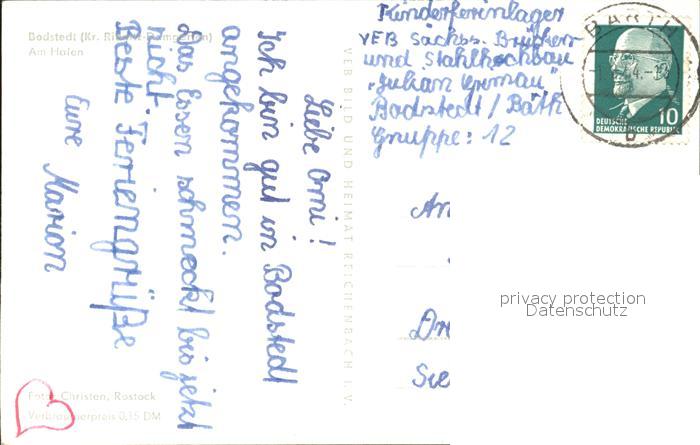 Bodstedt (Kr. Ribnitz-Damgarten)
Am Hafen
Liebe Omi!
Ich bin gut in Bodstedt
angekommen.
Das Essen schmeckt bis jetzt
nicht.
Beste Feriengrüße
Eure Marion
Foto: Christen, Rostock
Verbraucherpreis 0,15 DM
VEB BILD UND HEIMAT REICHENBACH I. V.
Kinderferienlager
VEB Sächss. Brücken-
und Stahlhochbau
"Julian Grimau"
Bodstedt / Bath
Gruppe: 12
BARTH
10
DEUTSCHE
DEMOKRATISCHE REPUBLIK
b
An
Dre
Sie
privacy protection
Datenschutz